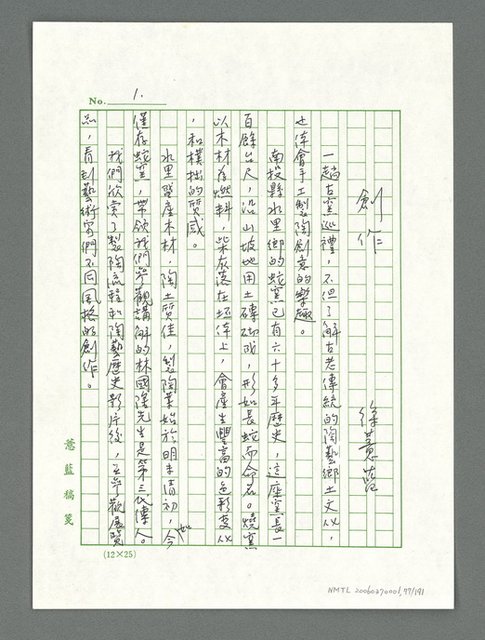 No. 1.
創作
徐薏藍
一趟古窯巡禮,不但了解古老傳統的陶藝鄉土文化,
也体會手工製陶創意的樂趣。
南投縣水里鄉的蛇窯已有六十多年歷史,這座窯長一
百餘台尺,沿山坡地用土磚砌成,形如長蛇而命名。燒窯
以木材為燃料,柴灰落在坯体上,會產生豐富的色彩變化
,和樸拙的質感。
水里盛產木材,陶土質佳,製陶業始於明末清初,如今
僅存蛇窯,帶領我們參觀講解的林國隆先生是第三代傳人。
我們欣賞了製陶流程和陶藝歷史影片後,並參觀展覽
品,看到藝術家們不同風格的創作。
薏藍稿箋
(12×25)
NMTL 20060270001, 77/191